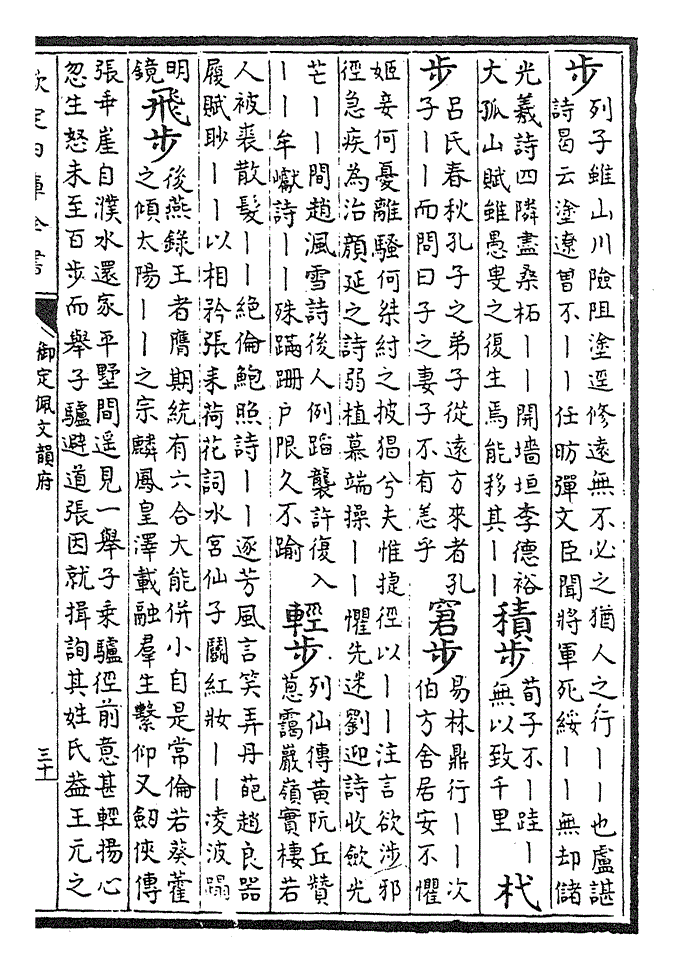 步
列子雖山川險阻塗逕修遠無不必之猶人之行丨丨也盧諶
詩曷云塗遼曽不丨丨任昉彈文臣聞將軍死綏丨丨無却儲
光羲詩四隣盡桑柘丨丨開墻垣李德裕
大孤山賦雖愚叟之復生焉能移其丨丨
積步
荀子不丨跬丨
無以致千里
杙
步
呂氏春秋孔子之弟子從遠方來者孔
子丨丨而問曰子之妻子不有恙乎
窘步
易林鼎行丨丨次
伯方舍居安不懼
姬妾何憂離騷何桀紂之披猖兮夫惟捷徑以丨丨注言欲涉邪
徑急疾為治顔延之詩弱植慕端操丨丨懼先迷劉迎詩收歛光
芒丨丨間趙渢雪詩後人例蹈襲許復入
丨丨牟巘詩丨丨殊蹣跚户限久不踰
輕步
列仙傳黄阮丘贊
䓗靄巖嶺實棲若
人被裘散髮丨丨絶倫鮑照詩丨丨逐芳風言笑弄丹葩趙良器
履賦眇丨丨以相矜張耒荷花詞水宮仙子鬬紅妝丨丨凌波蹋
明
鏡
飛步
後燕錄王者膺期統有六合大能併小自是常倫若葵藿
之傾太陽丨丨之宗麟鳳皇澤載融羣生繫仰又劒俠傳
張乖崖自濮水還家平野間遥見一舉子乘驢徑前意甚輕揚心
忽生怒未至百步而舉子驢避道張因就揖詢其姓氏葢王元之
欽定四庫全書
御定佩文韻府
三十